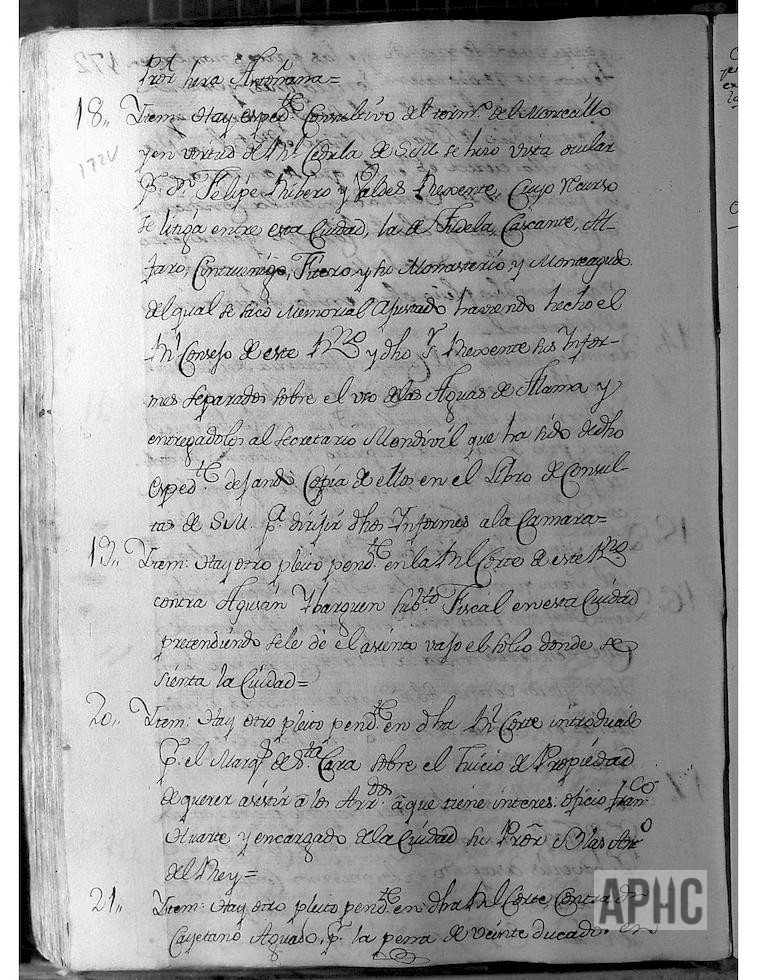 Pror hera Antoñana=
18,, Ytem: Hay exped.te Consultivo del term.o del Montecillo
1724
y en virtud de Rl Cedula de S.M. se hizo vista ocular
p.r Dn Felipe Ribero y Valdes Rexente, Cuyo recurso
se litiga entre esta Ciudad, la de Tudela, Cascante, Al-
faro, Cintruenigo, Fitero y su Monasterio y Monteagudo
del qual se sacó Memorial Ajustado haviendo hecho el
Rl Consejo de este R.no y dho S.r Rexente sus Infor-
mes separados sobre el uso de las Aguas de Alama y
entregadolos al Secretario Mondivil que ha sido de dho
exped.te dejando Copia de ellos en el Libro de Consul-
tas de S.M. p.a dirijir dhos Informes a la Camara=
19,, Ytem: Hay otro pleito pend.te en la Rl Corte de este R.no
contra Agustin Ybarguen subs.to Fiscal en esta Ciudad
pretendiendo se le dé el asiento vajo el solio donde se
sienta la Ciudad=
20,, Ytem: Hay otro pleito pend.te en dha Rl Corte introducido
p.r el Marq.s de S.ta Cara sobre el Juicio de Propiedad
de querer asistir á los Arr.dos á que tiene interes: oficio Fran.co
Huarte y encargado de la Ciudad su Pror Blas Ant.o
del Rey=
21,, Ytem: Hay otro pleito pend.te en dha Rl Corte Contra Dn
Cayetano Aguado, p.r la pena de veinte ducados en
APHC